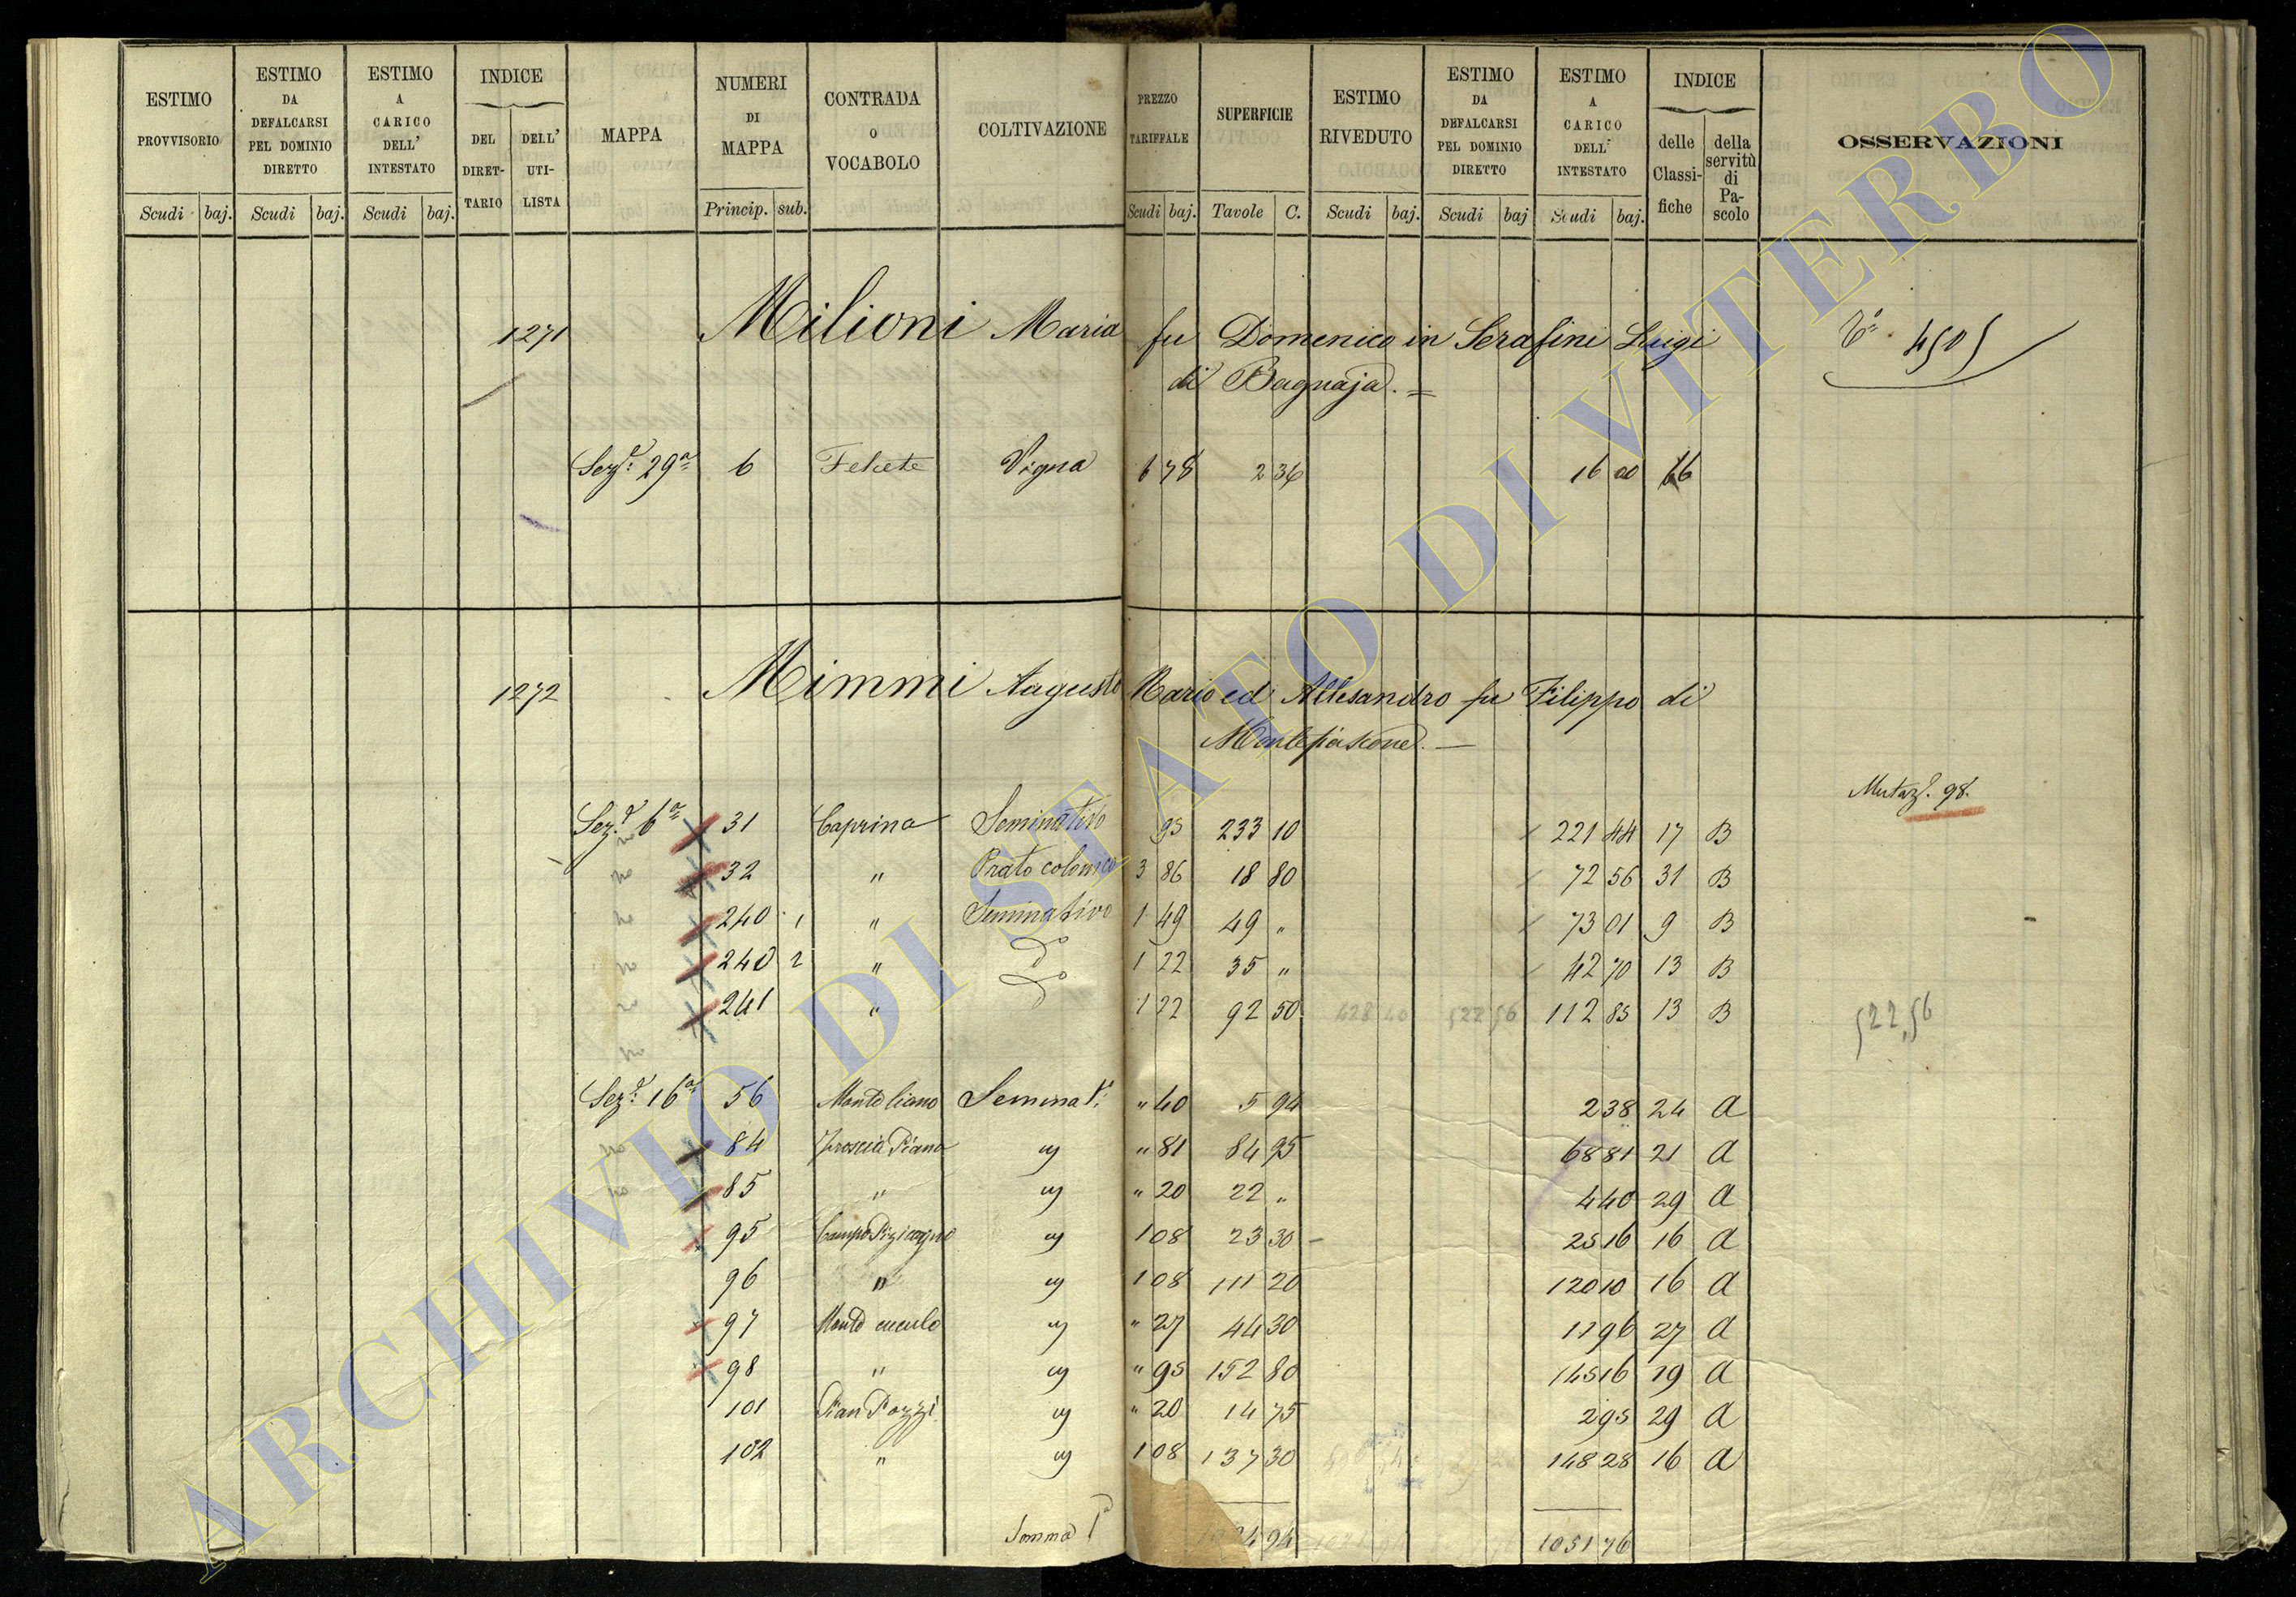 ESTIMO PROVVISORIO | ESTIMO DA DEFALCARSI PEL DOMINIO DIRETTO | ESTIMO A CARICO DELL' INTESTATO | INDICE DEL DIRET-TARIO | DELL' UTI-LISTA | MAPPA | NUMERI DI MAPPA | CONTRADA O VOCABOLO | COLTIVAZIONE | PREZZO TARIFFALE | SUPERFICIE | ESTIMO RIVEDUTO | ESTIMO DA DEFALCARSI PEL DOMINIO DIRETTO | ESTIMO A CARICO DELL' INTESTATO | INDICE delle Classi-fiche | della servitù di Pa-scolo | OSSERVAZIONI
Scudi baj. Scudi baj. Scudi baj. Princip. sub. Scudi baj. Tavole C. Scudi baj. Scudi baj Scudi baj.
1271 Milioni Maria fu Domenico in Serafini Luigi
di Bagnaja. =
Sez.e 29a 6 Felcete Vigna 6 78 2 36 16 00
1272 Mimmi Augusto Mario ed Allesandro fu Filippo di
Montefiascone. —
Mutaz.e 98.
Sez.e 6a 31 Caprina Seminativo 95 233 10 221 44 17 B
32 " Prato colonico 3 86 18 80 72 56 31 B
240 1 " Seminativo 1 49 49 " 73 01 9 B
240 2 " do 1 22 35 " 42 70 13 B
241 " do 1 22 92 50 428 40 522 56 112 85 13 B 522,56
Sez.e 16a 56 Monteliano " 40 5 94 2 38 24 A
84 Piano " 81 84 95 68 81 21 A
85 " " 20 22 " 4 40 29 A
95 Campo 1 08 23 30 25 16 16 A
96 " 1 08 111 20 120 10 16 A
97 Monte cuculo " 27 44 30 11 96 27 A
98 " " 95 152 80 145 16 19 A
101 Pian Pozzi " 20 14 75 2 95 29 A
102 " 1 08 137 30 148 28 16 A
Somma 94 1051 76
ARCHIVIO DI STATO DI VITERBO